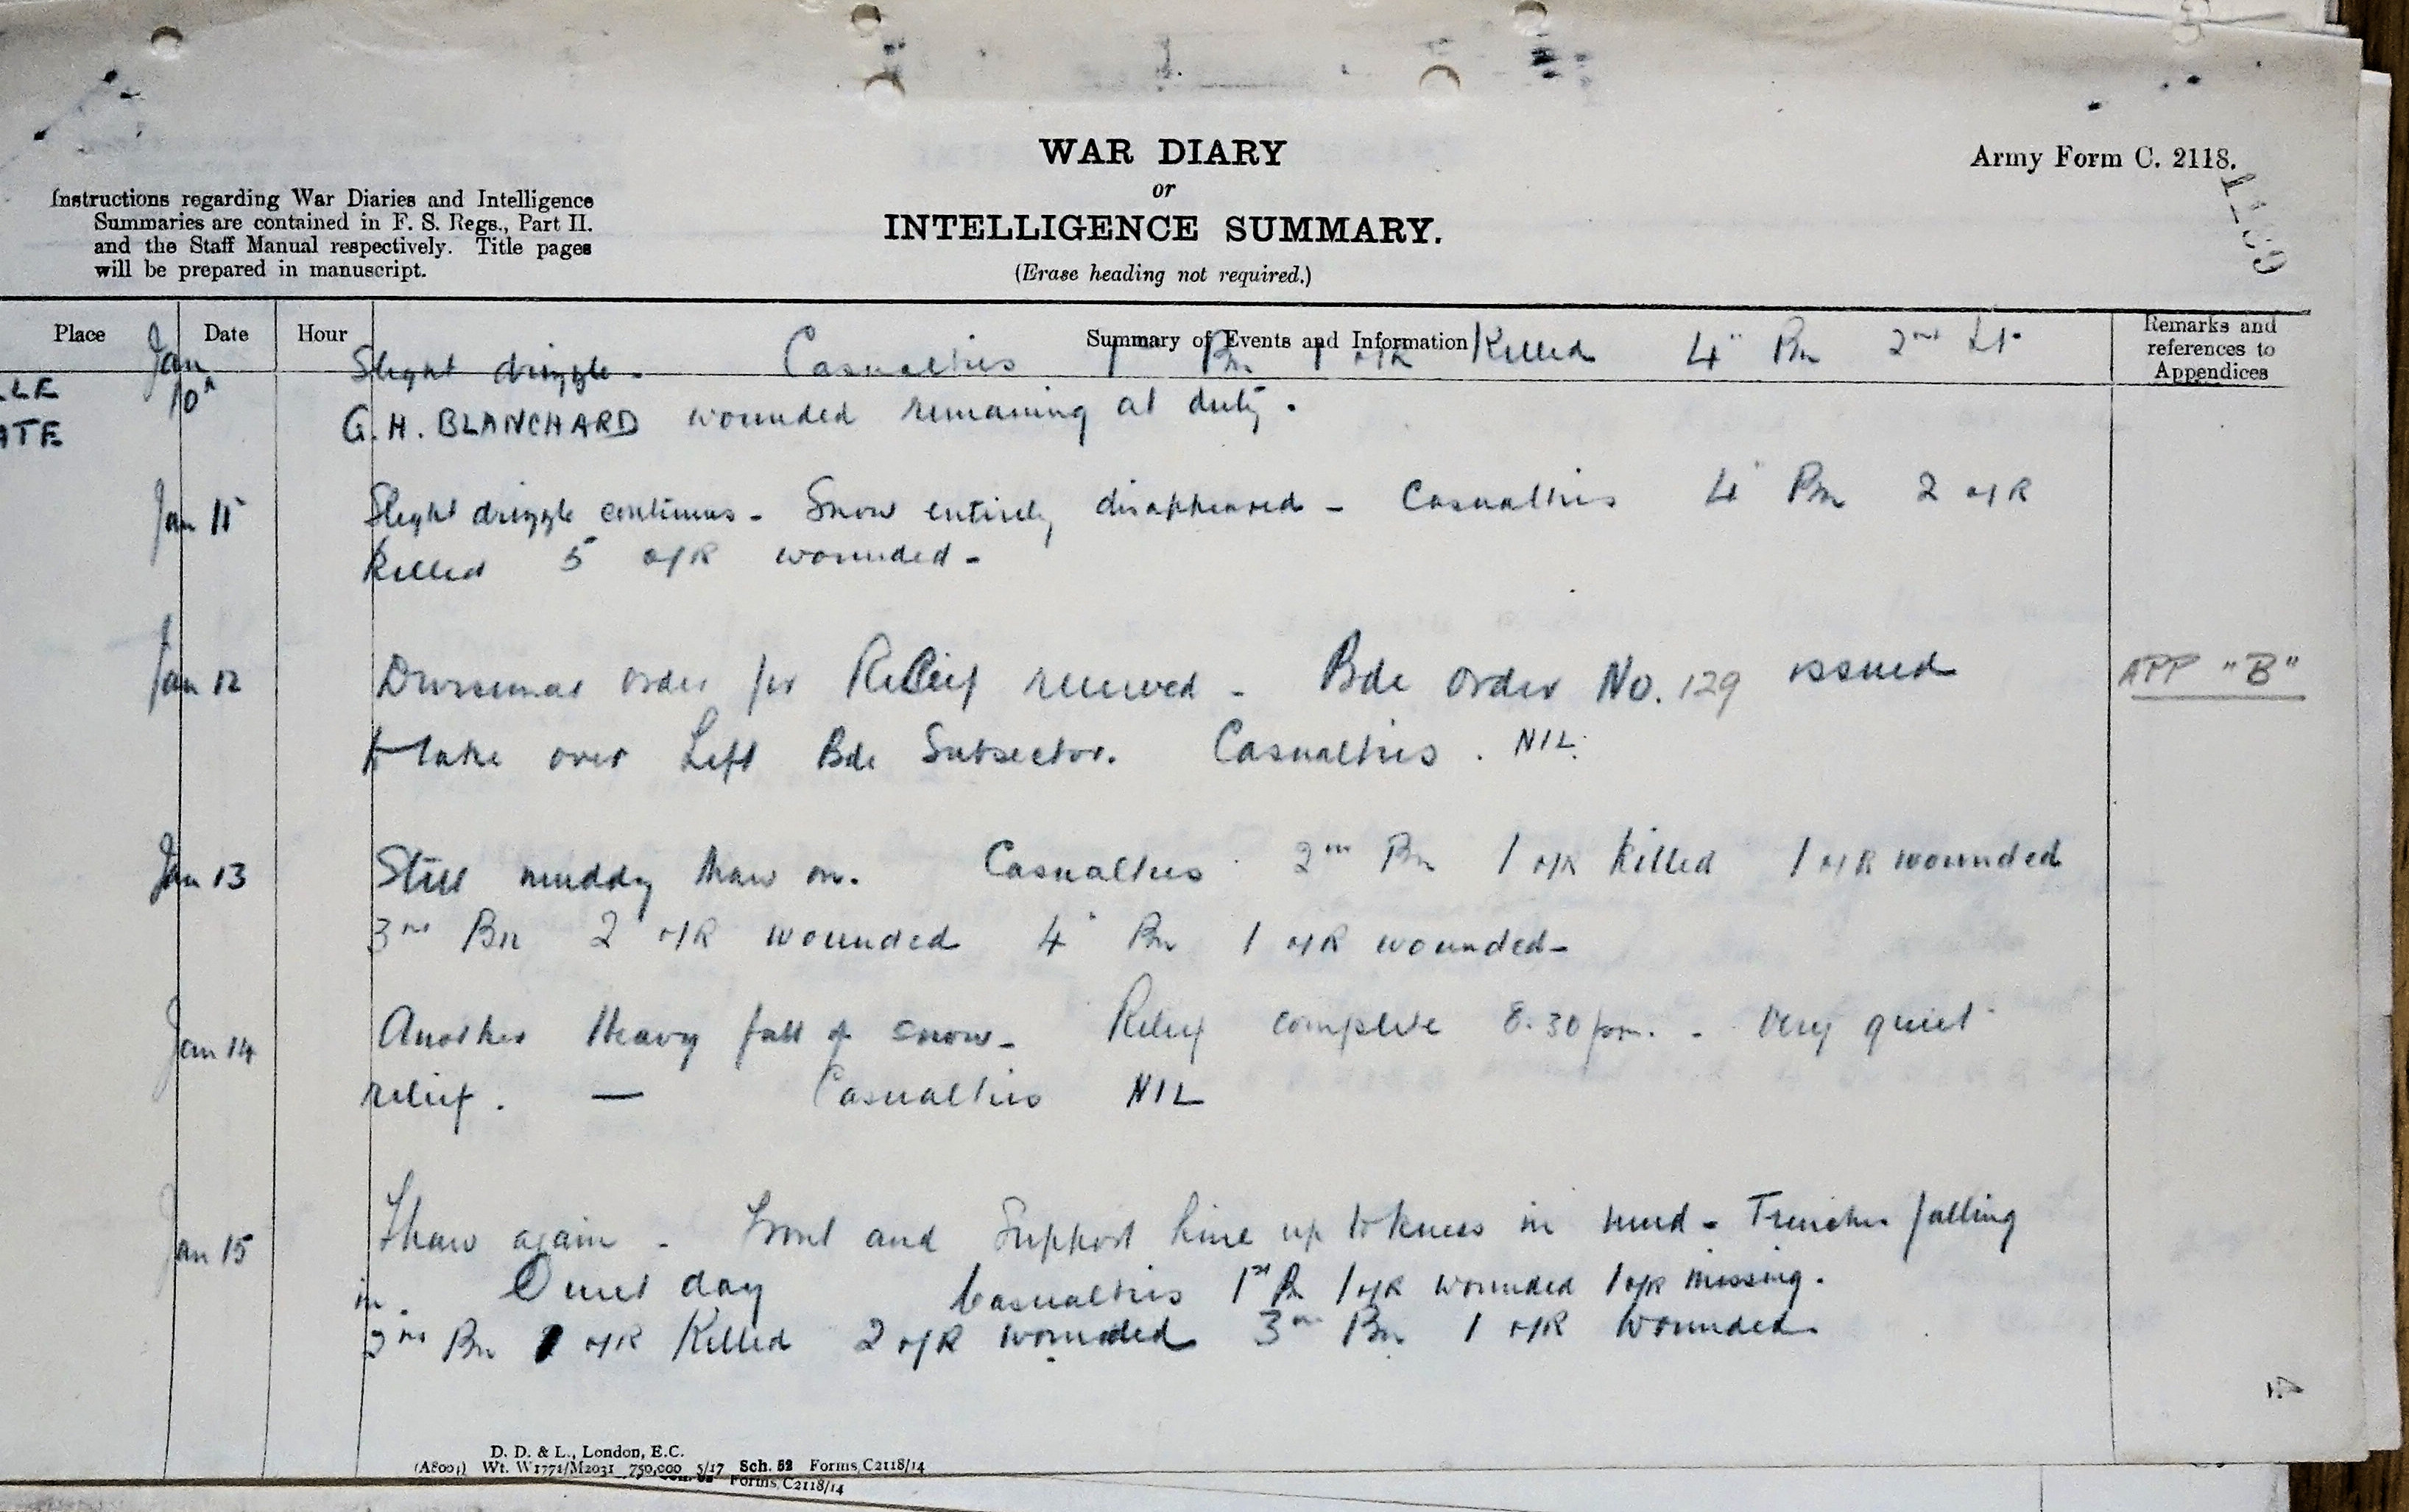 WAR DIARY
or
INTELLIGENCE SUMMARY.
(Erase heading not required.)
Army Form C. 2118.
Instructions regarding War Diaries and Intelligence
Summaries are contained in F. S. Regs., Part II.
and the Staff Manual respectively. Title pages
will be prepared in manuscript.
Place Date Hour Summary of Events and Information Remarks and references to Appendices
LE
ATE
Jan 10th Slight drizzle. Casualties 1st Bn. 1 o/R Killed 4th Bn 2nd Lt.
G.H. BLANCHARD wounded remaining at duty.
Jan 11 Slight drizzle continues - Snow entirely disappeared - Casualties 4th Bn 2 o/R
killed 5 o/R wounded -
Jan 12 Divisional order for Relief received - Bde order No. 129 issued APP "B"
to take over Left Bde Subsector. Casualties . NIL.
Jan 13 Still muddy thaw on. Casualties 2nd Bn 1 o/R killed 1 o/R wounded
3rd Bn 2 o/R wounded 4th Bn 1 o/R wounded -
Jan 14 Another Heavy fall of snow - Relief complete 8.30 pm. - Very quiet
relief. — Casualties NIL
Jan 15 Thaw again - Front and Support line up to knees in mud - Trenches falling
in. Quiet day Casualties 1st Bn 1 o/R wounded 1 o/R missing.
2nd Bn 1 o/R Killed 2 o/R wounded 3rd Bn 1 o/R wounded.
D. D. & L., London, E.C.
(A8001) Wt. W1771/M2031 750,000 5/17 Sch. 52 Forms/C2118/14
Forms/C2118/14